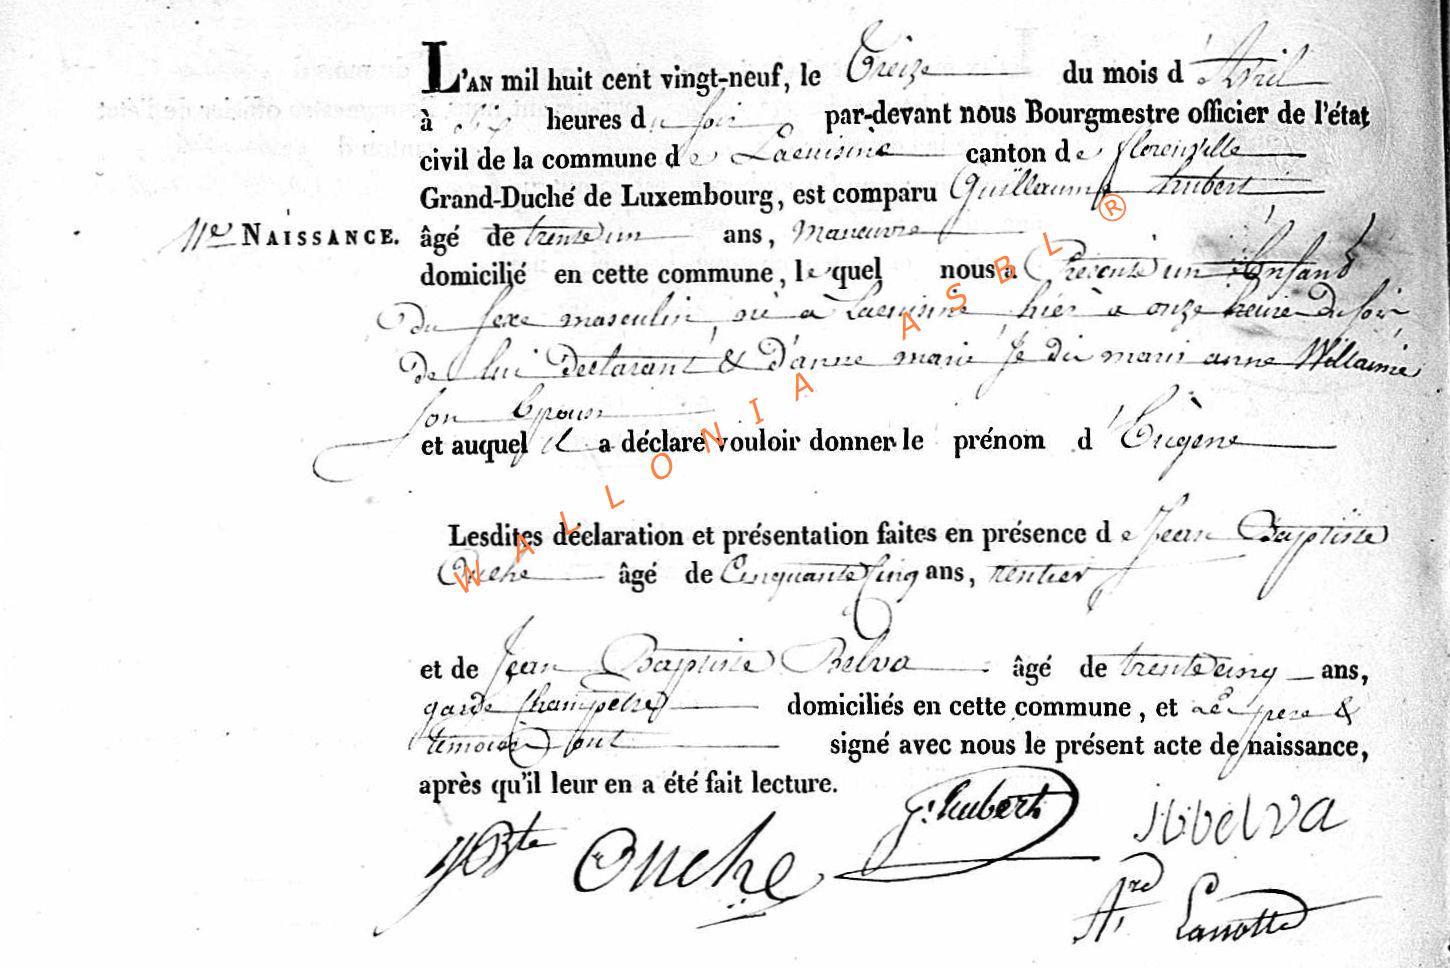 L'AN mil huit cent vingt-neuf, le Treize du mois d'Avril
à six heures du soir par-devant nous Bourgmestre officier de l'état
civil de la commune de Lacuisine canton de florenville
Grand-Duché de Luxembourg, est comparu Guillaume hubert
11e NAISSANCE. âgé de trente un ans, Manœuvre
domicilié en cette commune, lequel nous a Présenté un Enfant
Du sexe masculin, né à Lacuisine hier à onze heure Du soir
De lui Declarant & D'anne marie anne Willaime
son Epouse
et auquel il a déclaré vouloir donner le prénom d'Eugène
Lesdites déclaration et présentation faites en présence de Jean Baptiste
Ouche âgé de Cinquante Cinq ans, rentier
et de Jean Baptiste Belva âgé de trente cinq ans,
garde Champetre domiciliés en cette commune, et Le père &
témoins ont signé avec nous le présent acte de naissance,
après qu'il leur en a été fait lecture.
JBte Ouche G. hubert JBbelva
Lanotte
WALLONIA ASBL ®